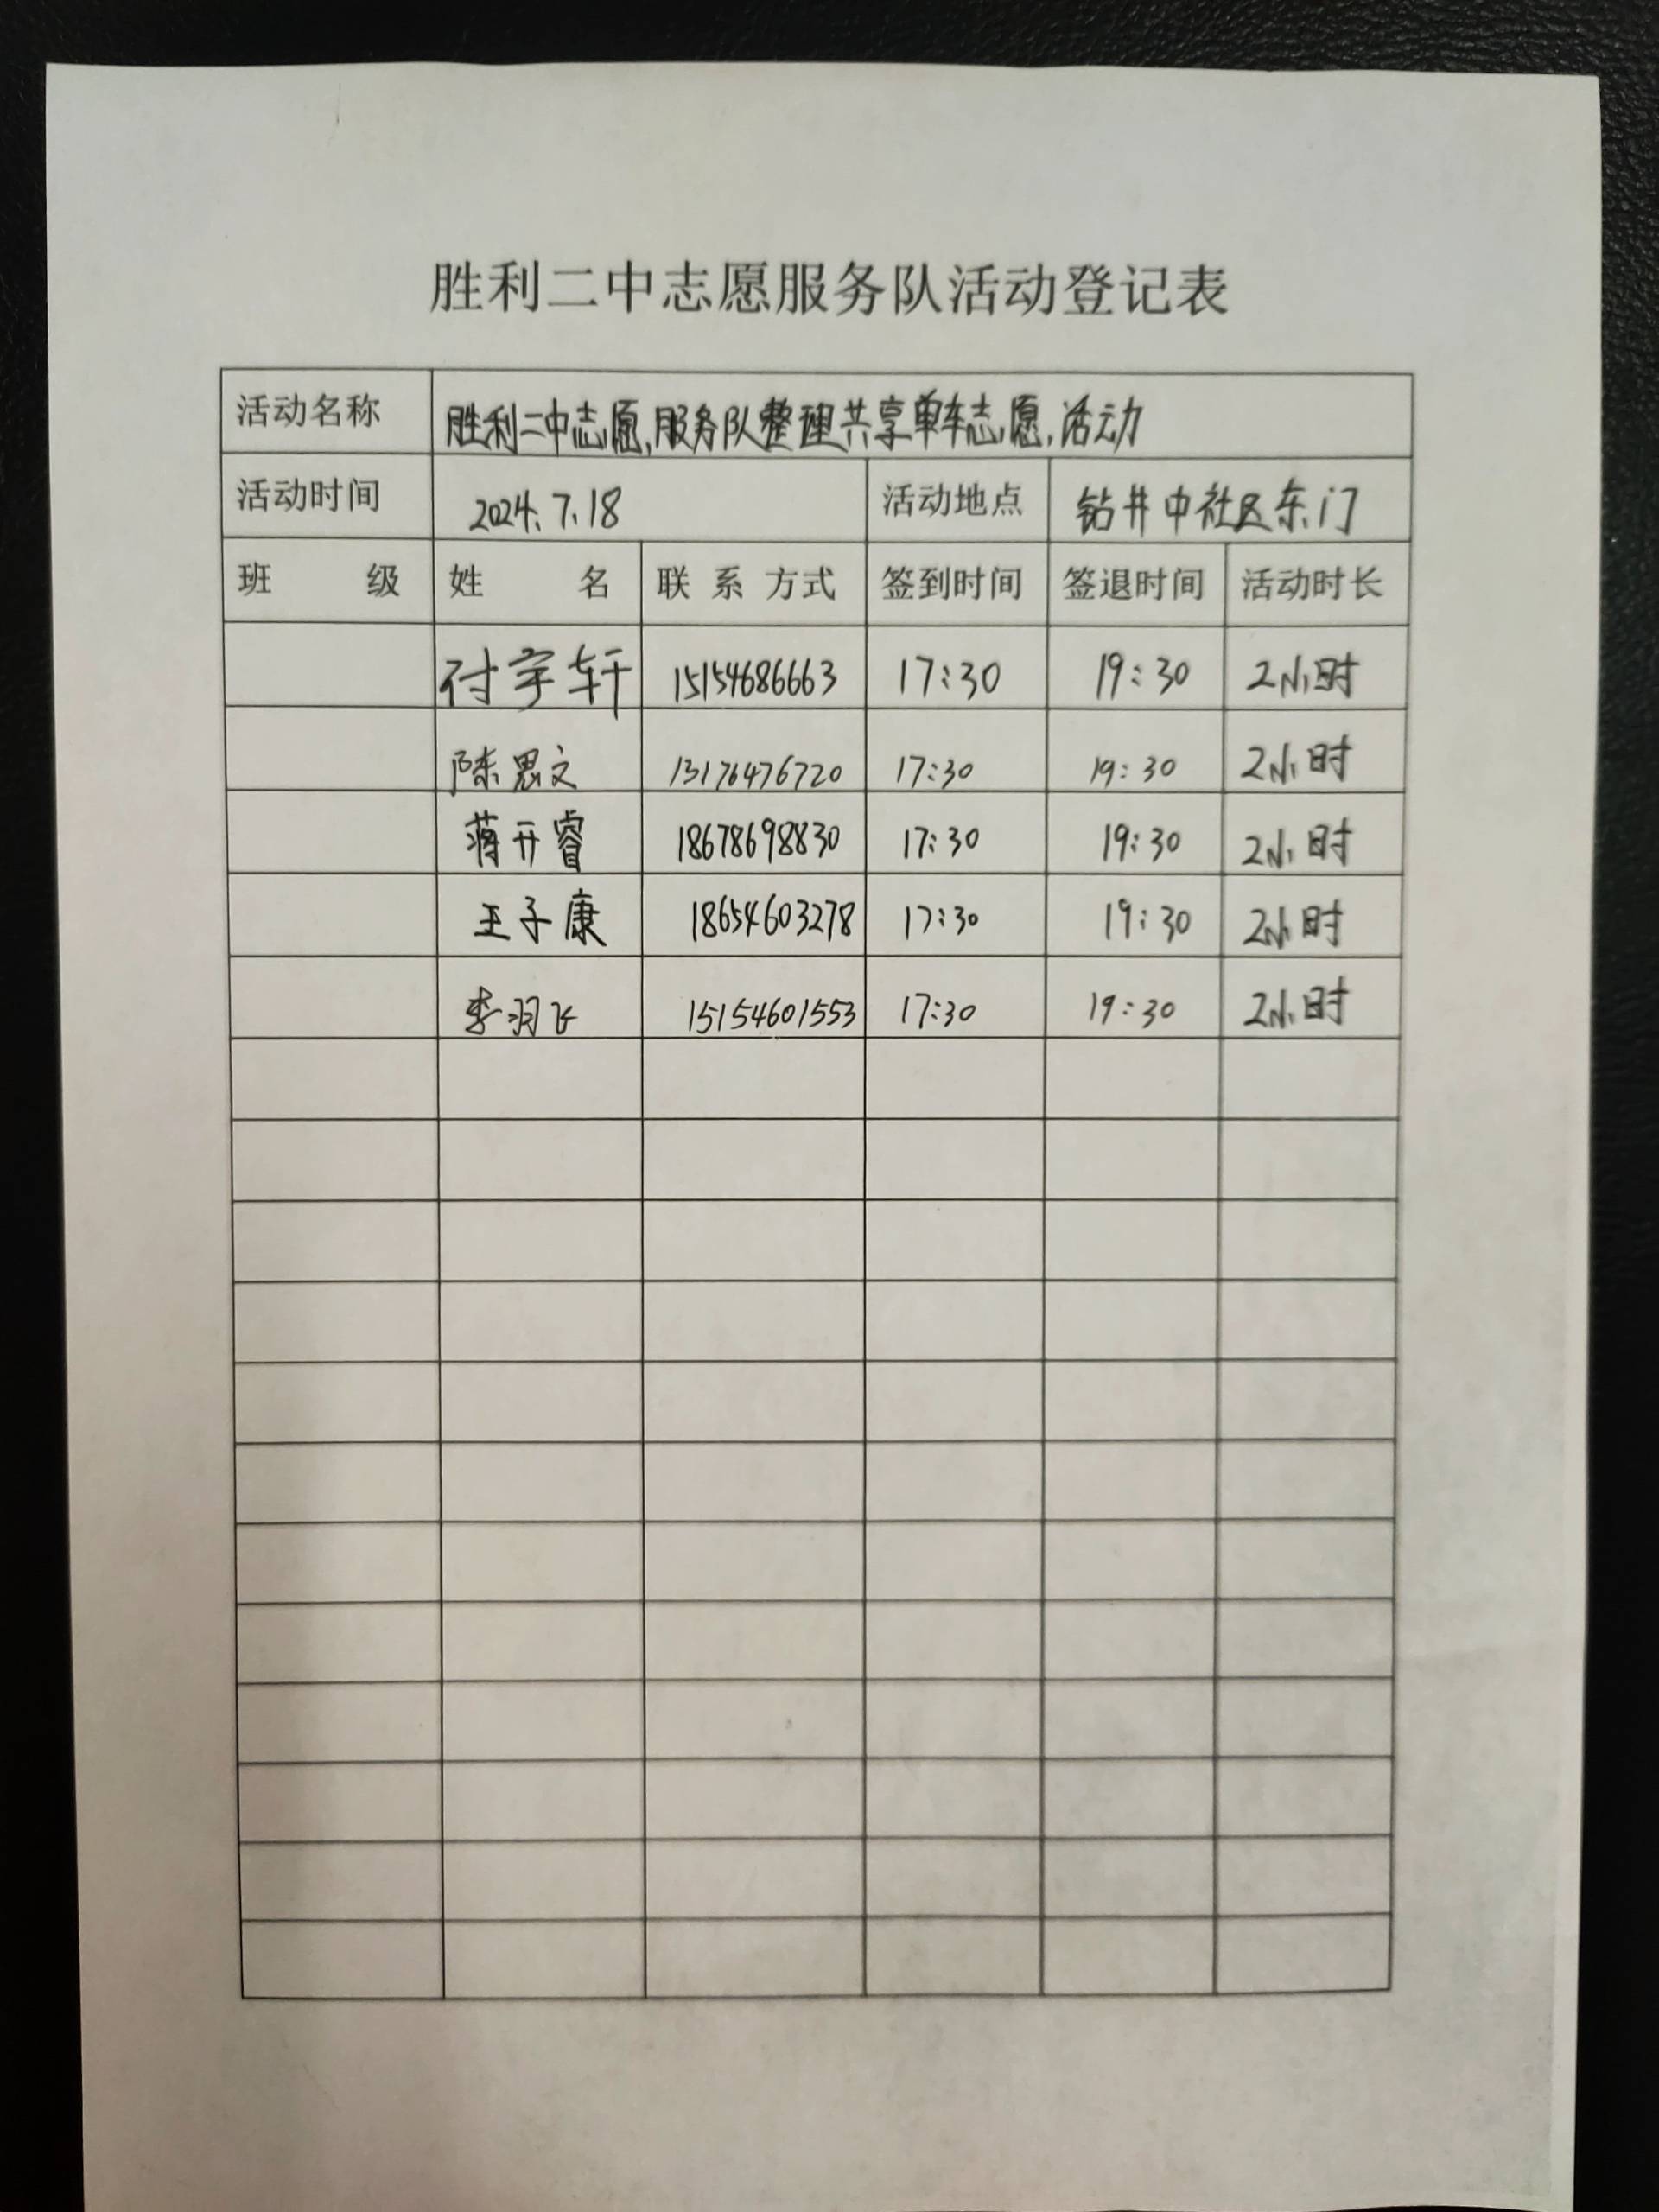 胜利二中志愿服务队活动登记表
活动名称 胜利二中志愿服务队整理共享单车志愿活动
活动时间 2024.7.18 活动地点 钻井中社区东门
班 级 姓 名 联 系 方式 签到时间 签退时间 活动时长
付宇轩 15154686663 17:30 19:30 2小时
陈思文 13176476720 17:30 19:30 2小时
蒋开睿 18678698830 17:30 19:30 2小时
王子康 18654603278 17:30 19:30 2小时
李羽飞 15154601553 17:30 19:30 2小时